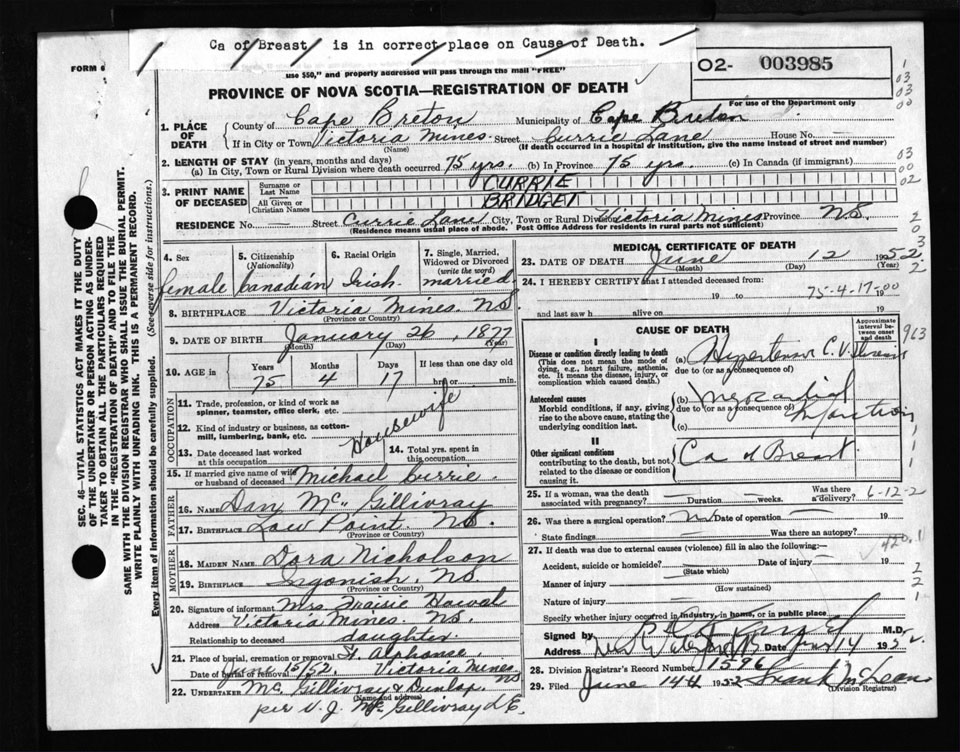 Ca of Breast is in correct place on Cause of Death.
FORM 6
use $50," and properly addressed will pass through the mail "FREE"
O2- 003985
PROVINCE OF NOVA SCOTIA—REGISTRATION OF DEATH
For use of the Department only
1. PLACE OF DEATH
County of Cape Breton Municipality of Cape Breton
If in City or Town Victoria Mines Street Currie Lane House No. —
(Name) (If death occurred in a hospital or institution, give the name instead of street and number)
2. LENGTH OF STAY (in years, months and days)
(a) In City, Town or Rural Division where death occurred 75 yrs. (b) In Province 75 yrs. (c) In Canada (if immigrant)
3. PRINT NAME OF DECEASED
Surname or Last Name CURRIE
All Given or Christian Names BRIDGET
RESIDENCE No. — Street Currie Lane City, Town or Rural Division Victoria Mines Province N.S.
(Residence means usual place of abode. Post Office Address for residents in rural parts not sufficient)
4. Sex female
5. Citizenship (Nationality) Canadian
6. Racial Origin Irish
7. Single, Married, Widowed or Divorced (write the word) married
8. BIRTHPLACE Victoria Mines. NS
(Province or Country)
9. DATE OF BIRTH January 26, 1877
(Month) (Day) (Year)
10. AGE in Years 75 Months 4 Days 17 If less than one day old hr. or min.
OCCUPATION
11. Trade, profession, or kind of work as spinner, teamster, office clerk, etc.
12. Kind of industry or business, as cotton-mill, lumbering, bank, etc.
Housewife
13. Date deceased last worked at this occupation
14. Total yrs. spent in this occupation
15. If married give name of wife or husband of deceased Michael Currie.
FATHER
16. NAME Dan McGillivray
17. BIRTHPLACE Low Point. NS.
(Province or Country)
MOTHER
18. MAIDEN NAME Dora Nicholson
19. BIRTHPLACE Ingonish. NS
(Province or Country)
20. Signature of informant Mrs.
Address Victoria Mines. NS.
Relationship to deceased daughter.
21. Place of burial, cremation or removal St. Alphonse. Victoria Mines NS
Date of burial or removal June 15/52
22. UNDERTAKER McGillivray & Dunlap.
(Name and address)
per V. J. McGillivray L.E.
MEDICAL CERTIFICATE OF DEATH
23. DATE OF DEATH June 12 1952
(Month) (Day) (Year)
24. I HEREBY CERTIFY that I attended deceased from:
19 to 19
75-4-17-00
and last saw h alive on 19
CAUSE OF DEATH
Approximate interval between onset and death
I
Disease or condition directly leading to death
(This does not mean the mode of dying, e.g., heart failure, asthenia, etc. It means the disease, injury, or complication which caused death.)
(a) Hypertensive C.V. Disease
due to (or as a consequence of)
Antecedent causes
Morbid conditions, if any, giving rise to the above cause, stating the underlying condition last.
(b) Myocardial Infarction
due to (or as a consequence of)
(c)
II
Other significant conditions
contributing to the death, but not related to the disease or condition causing it.
Ca of Breast
25. If a woman, was the death associated with pregnancy? — Duration — weeks. Was there a delivery? —
6-12-2
26. Was there a surgical operation? No Date of operation — 19
State findings Was there an autopsy?
27. If death was due to external causes (violence) fill in also the following:—
420.1
Accident, suicide or homicide? Date of injury 19
(State which)
Manner of injury
(How sustained)
Nature of injury
Specify whether injury occurred in industry, in home, or in public place
Signed by M.D.
Address New Waterford Date June 14 1952
28. Division Registrar's Record Number 1596
29. Filed June 14th 1952 Frank McLean
(Division Registrar)
963
SEC. 46—VITAL STATISTICS ACT MAKES IT THE DUTY
OF THE UNDERTAKER OR PERSON ACTING AS UNDER-
TAKER TO OBTAIN ALL THE PARTICULARS REQUIRED
IN THE "REGISTRATION OF DEATH" AND TO FILE THE
SAME WITH THE DIVISION REGISTRAR WHO SHALL ISSUE THE BURIAL PERMIT.
WRITE PLAINLY WITH UNFADING INK. THIS IS A PERMANENT RECORD.
Every item of information should be carefully supplied. (See reverse side for instructions.)